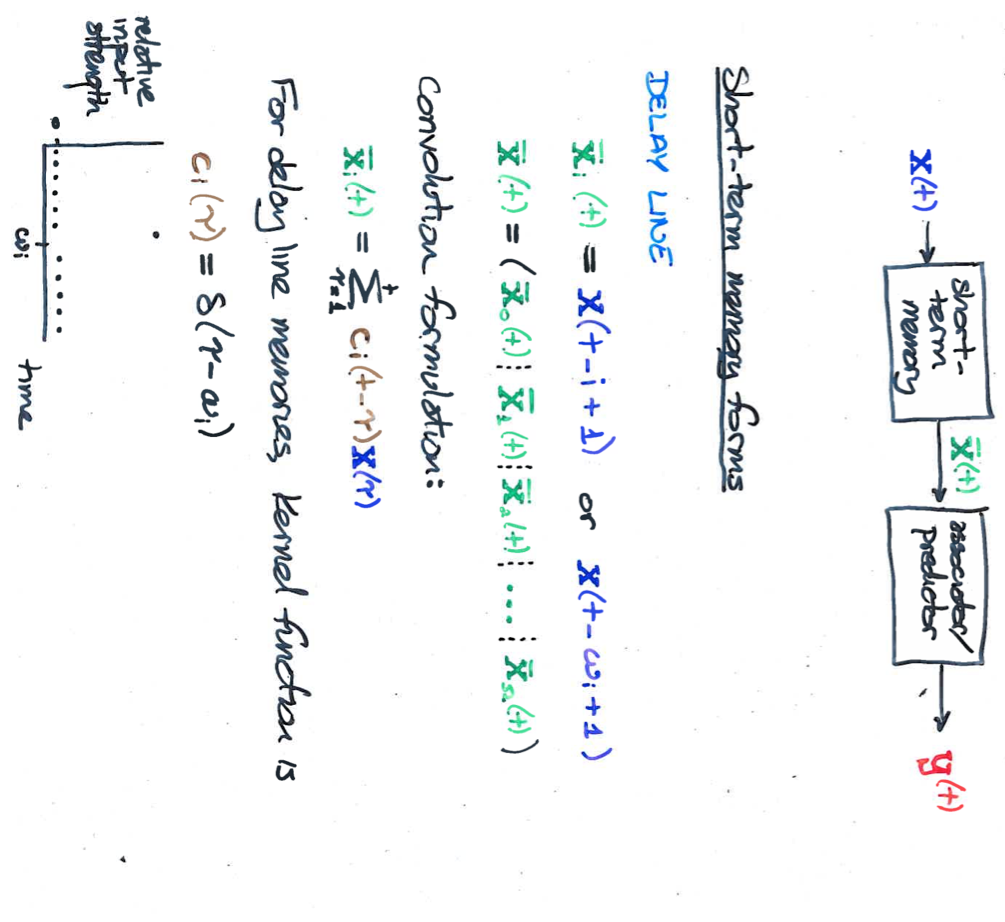 x(t) → short-term memory → x̄(t) → associator/predictor → y(t)
Short-term memory forms
DELAY LINE
x̄ᵢ(t) = x(t-i+1) or x(t-ωᵢ+1)
x̄(t) = (x̄₀(t) ⋮ x̄₁(t) ⋮ x̄₂(t) ⋮ ... ⋮ x̄_Ω(t))
Convolution formulation:
x̄ᵢ(t) = Σ_{τ=1}^{t} cᵢ(t-τ)x(τ)
For delay line memories, kernel function is
cᵢ(τ) = δ(τ-ωᵢ)
relative
input
strength
ωᵢ
time